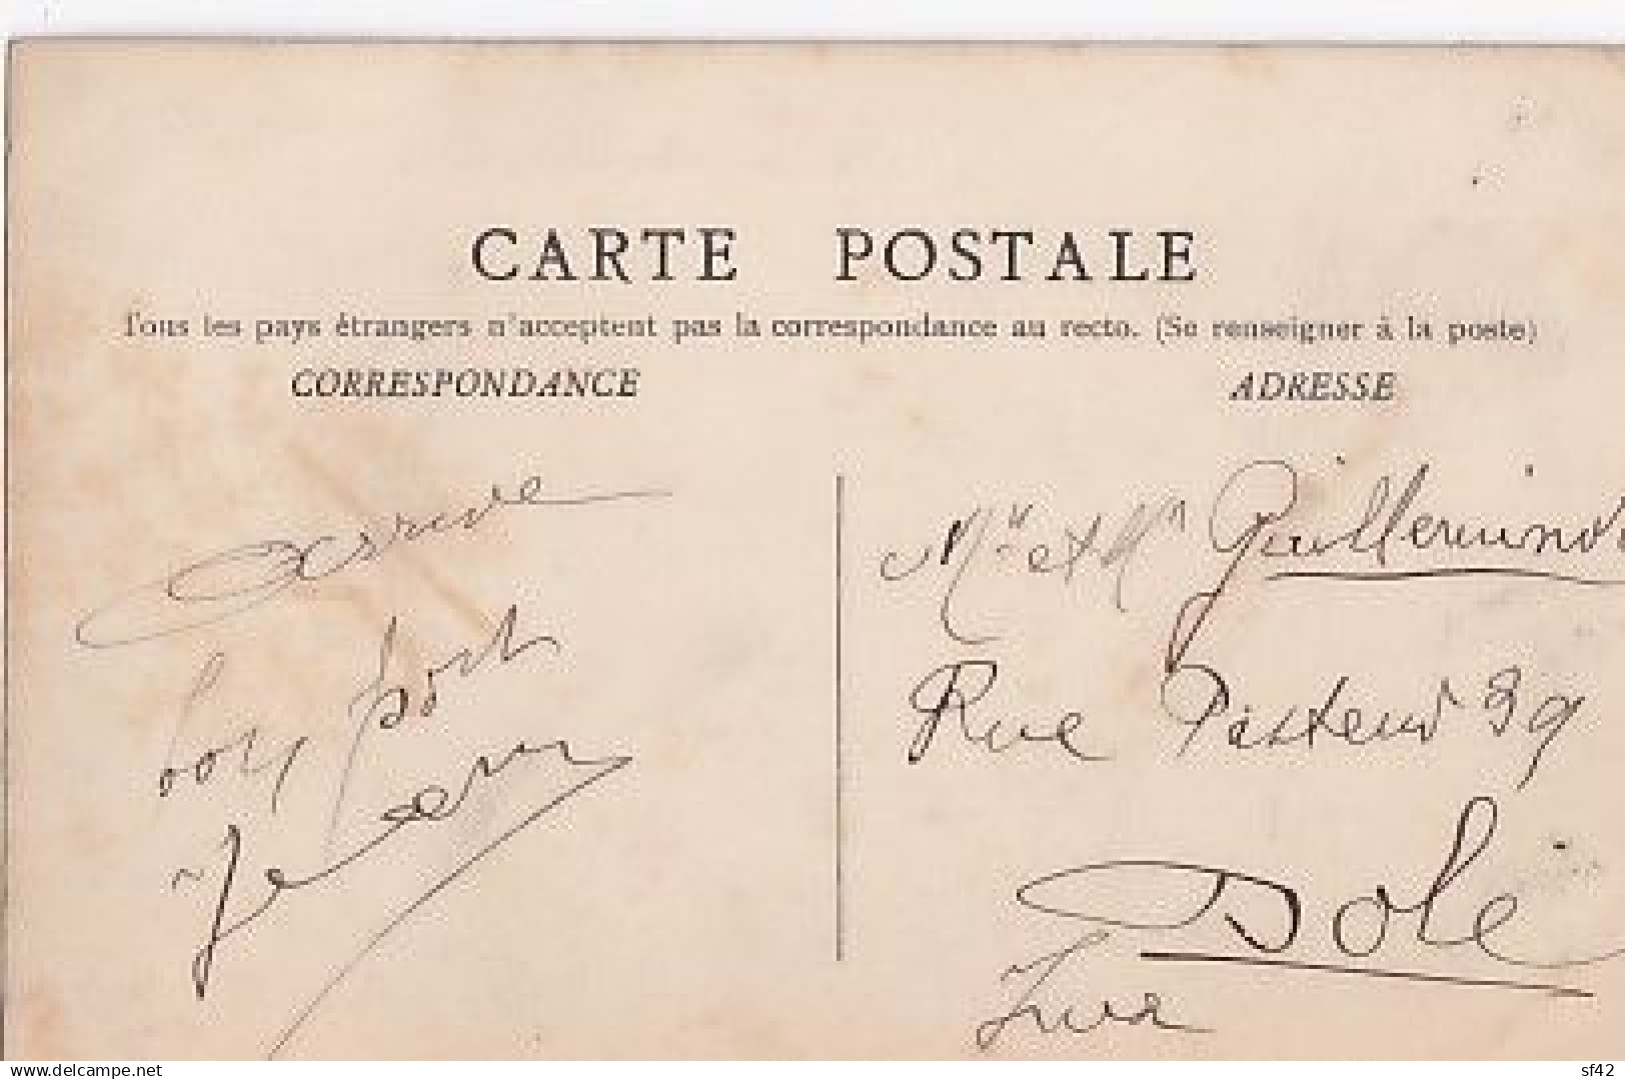 CARTE POSTALE
Tous les pays étrangers n'acceptent pas la correspondance au recto. (Se renseigner à la poste)
CORRESPONDANCE
ADRESSE
bon port
Mr et Mme Guillemin
Rue Pasteur 39
Dole
Jura
www.delcampe.net
sf42